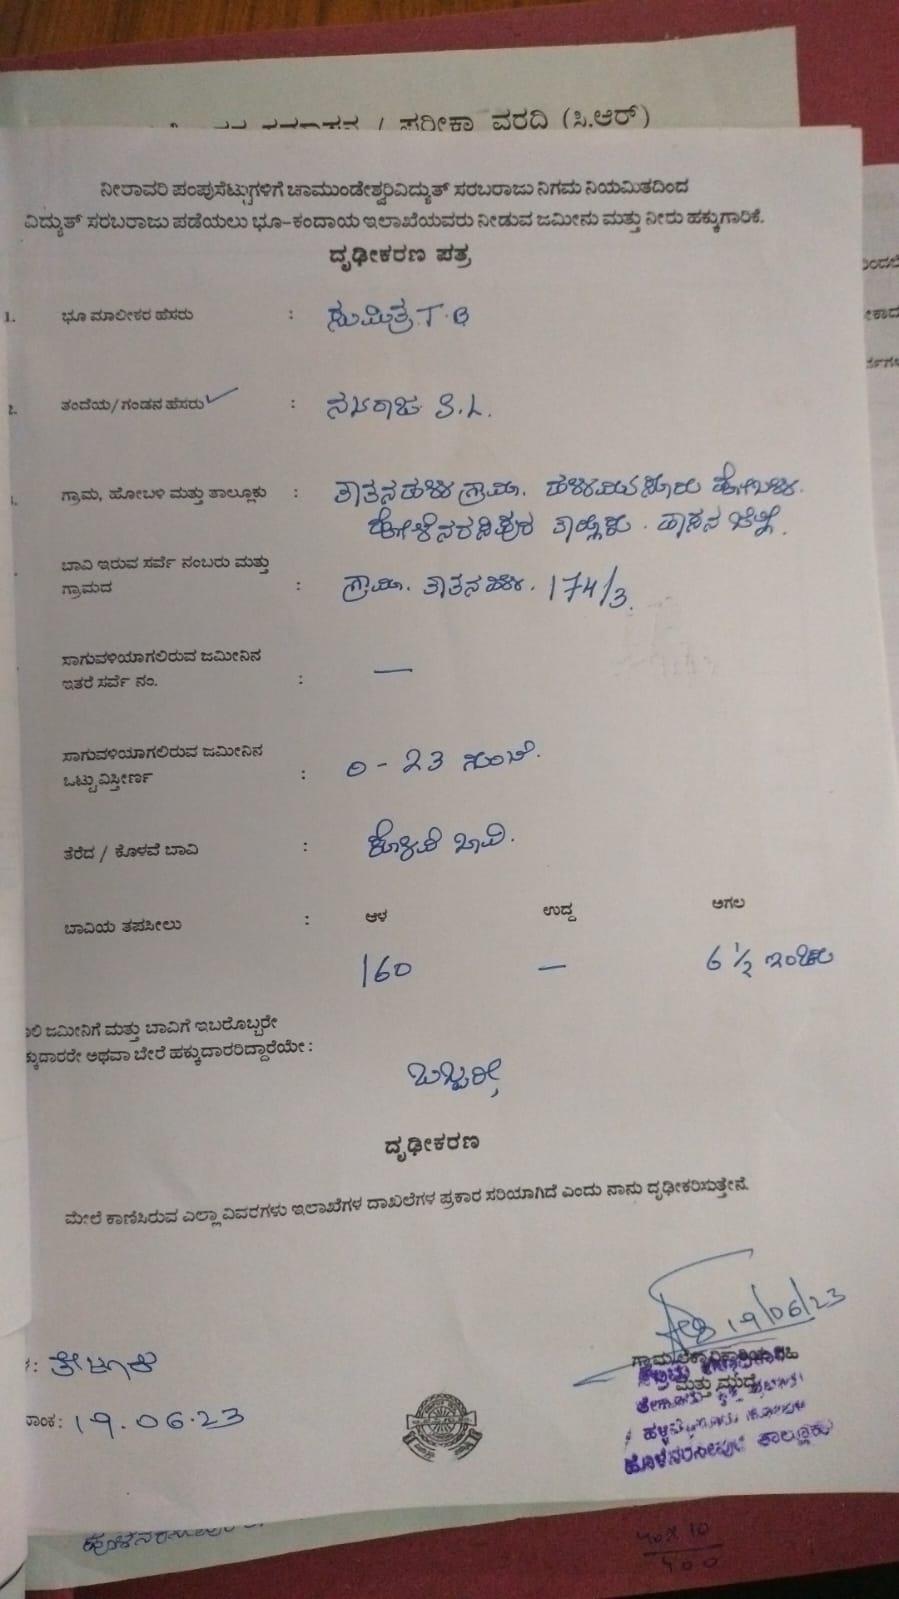 ಪರೀಕಾ ವರದಿ (ಸಿ.ಆರ್)
ನೀರಾವರಿ ಪಂಪುಸೆಟ್ಟುಗಳಿಗೆ ಚಾಮುಂಡೇಶ್ವರಿವಿದ್ಯುತ್ ಸರಬರಾಜು ನಿಗಮ ನಿಯಮಿತದಿಂದ
ವಿದ್ಯುತ್ ಸರಬರಾಜು ಪಡೆಯಲು ಭೂ-ಕಂದಾಯ ಇಲಾಖೆಯವರು ನೀಡುವ ಜಮೀನು ಮತ್ತು ನೀರು ಹಕ್ಕುಗಾರಿಕೆ.
ದೃಢೀಕರಣ ಪತ್ರ
1. ಭೂ ಮಾಲೀಕರ ಹೆಸರು : ಸುಮಿತ್ರ T.B
2. ತಂದೆಯ/ಗಂಡನ ಹೆಸರು : S.L.
ಗ್ರಾಮ, ಹೋಬಳಿ ಮತ್ತು ತಾಲ್ಲೂಕು : ತಾತನಹಳ್ಳಿ ಗ್ರಾಮ. ಹೋಬಳಿ.
ಹೊಳೆನರಸಿಪುರ ತಾಲ್ಲೂಕು. ಹಾಸನ ಜಿಲ್ಲೆ.
ಬಾವಿ ಇರುವ ಸರ್ವೆ ನಂಬರು ಮತ್ತು
ಗ್ರಾಮದ : ಗ್ರಾಮ. ತಾತನಹಳ್ಳಿ. 174/3.
ಸಾಗುವಳಿಯಾಗಲಿರುವ ಜಮೀನಿನ
ಇತರೆ ಸರ್ವೆ ನಂ. : —
ಸಾಗುವಳಿಯಾಗಲಿರುವ ಜಮೀನಿನ
ಒಟ್ಟುವಿಸ್ತೀರ್ಣ : 0-23 ಗುಂಟೆ.
ತೆರೆದ / ಕೊಳವೆ ಬಾವಿ : ಕೊಳವೆ ಬಾವಿ.
ಬಾವಿಯ ತಪಸೀಲು : ಆಳ ಉದ್ದ ಅಗಲ
160 — 6 1/2 ಇಂಚು
ಜಮೀನಿಗೆ ಮತ್ತು ಬಾವಿಗೆ ಇಬರೊಬ್ಬರೇ
ಅಥವಾ ಬೇರೆ ಹಕ್ಕುದಾರರಿದ್ದಾರೆಯೇ :
ಒಬ್ಬರೇ,
ದೃಢೀಕರಣ
ಮೇಲೆ ಕಾಣಿಸಿರುವ ಎಲ್ಲಾ ವಿವರಗಳು ಇಲಾಖೆಗಳ ದಾಖಲೆಗಳ ಪ್ರಕಾರ ಸರಿಯಾಗಿದೆ ಎಂದು ನಾನು ದೃಢೀಕರಿಸುತ್ತೇನೆ.
19/06/23
ಮತ್ತು ಮುದ್ರೆ
ಹೊಳೆನರಸೀಪುರ ತಾಲ್ಲೂಕು
19.06.23
40×10
400